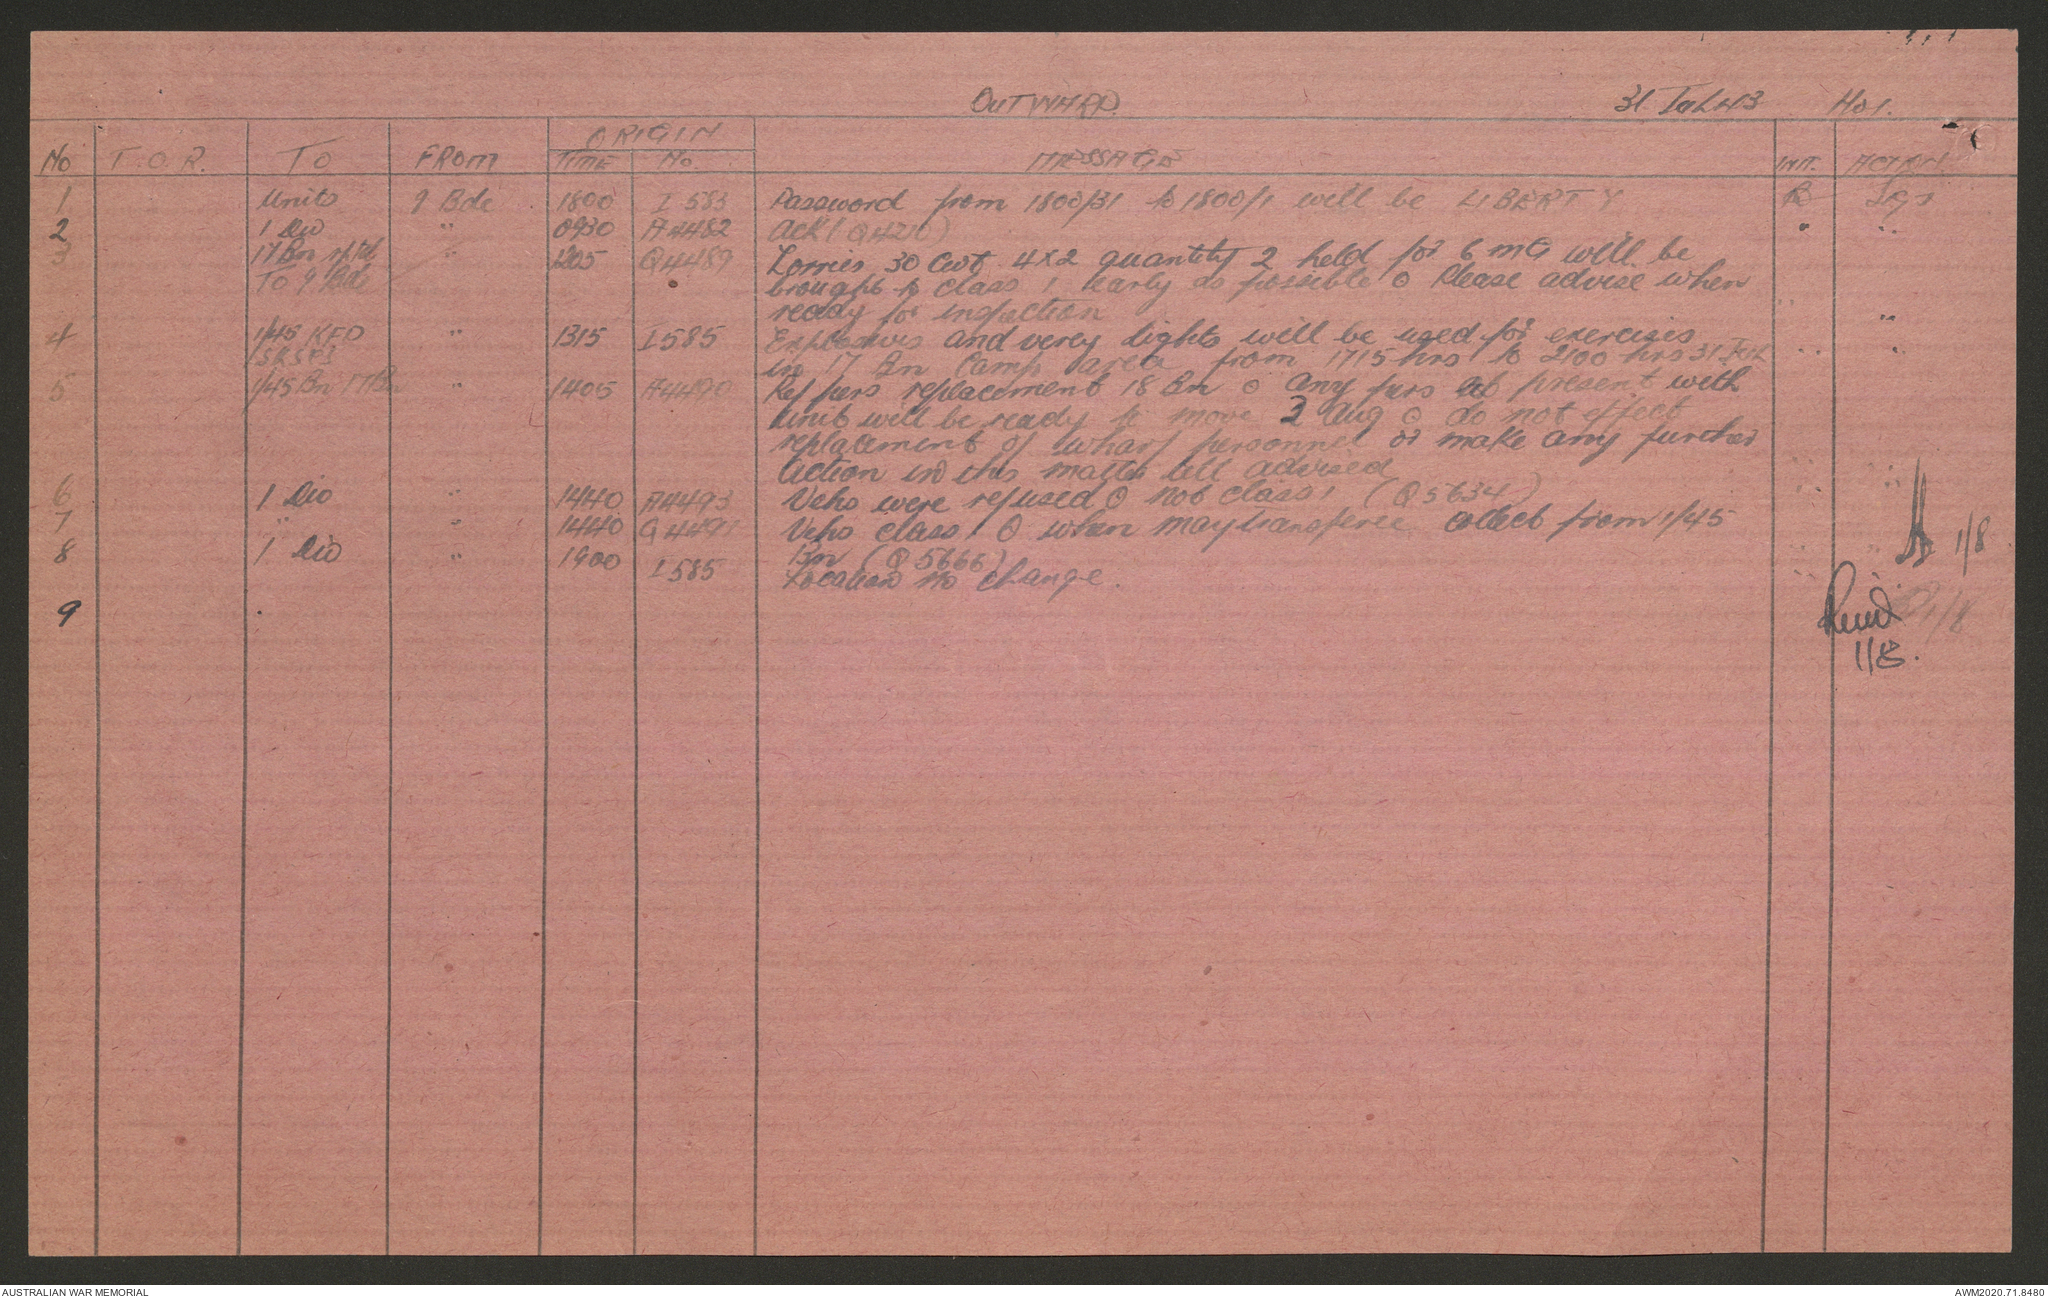 OUTWARD 31 Jul 43 No 1.
ORIGIN
No T.O.R. TO FROM TIME No. MESSAGE INIT. ACTION
1 Units 9 Bde 1800 I 583 Password from 1800/31 to 1800/1 will be LIBERTY
2 1 Div " 0930 A4482 Ack (Q4210)
3 17 Bn rptd " 1205 Q4489 Lorries 30 Cwt 4x2 quantity 2 held for 6 MG will be
To 9 Bde brought to class 1 early as possible o Please advise when
ready for inspection
4 1/45 KFD " 1315 I585 Explosives and verey lights will be used for exercises
in 17 Bn Camp area from 1715 hrs to 2100 hrs 31 July
5 1/45 Bn 17 Bn " 1405 A4490 Ref pers replacement 18 Bn o Any pers at present with
unit will be ready to move 2 Aug o do not effect
replacement of wharf personnel or make any further
action in this matter till advised
6 1 Div " 1440 A4493 Vehs were refused o not class 1 (Q5634)
7 " " 1440 Q4491 Vehs class 1 o when may transferee collect from 1/45
Bn (Q5666)
8 1 Div " 1900 I585 Location no change.
1/8
9
1/8
1/8.
AUSTRALIAN WAR MEMORIAL AWM2020.71.8480